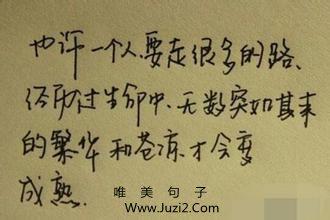 也许一个人,要走很多的路、
经历过生命中、无数突如其来
的繁华和苍凉.才会变
成熟.
唯美句子
www.Juzi2.Com